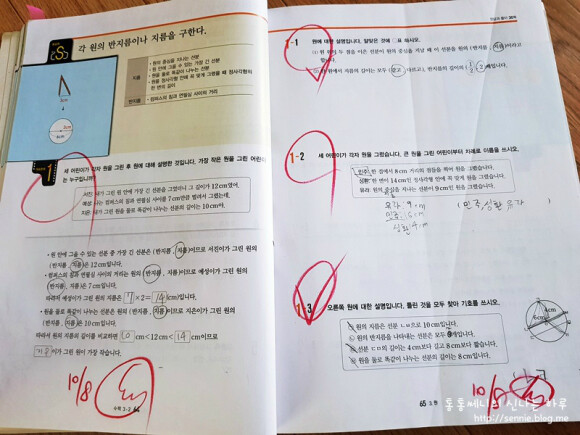 각 원의 반지름이나 지름을 구한다.
지름
• 원의 중심을 지나는 선분
• 원 안에 그을 수 있는 가장 긴 선분
• 원을 똑같이 나누는 선분
반지름
• 컴퍼스의 침과 연필심 사이의 거리
1
세 어린이가 각자 원을 그린 후 원에 대해 설명한 것입니다. 가장 작은 원을 그린 어린이
는 누구입니까?
서진: 내가 그린 원 안에 가장 긴 선분을 그었더니 그 길이가 12 cm였어.
예성: 나는 컴퍼스의 침과 연필심 사이를 7 cm만큼 벌려서 그렸는데,
지은: 내가 그린 원을 똑같이 나누는 선분의 길이는 10 cm야.
• 원 안에 그을 수 있는 선분 중 가장 긴 선분은 (반지름, 지름)이므로 서진이가 그린 원의
(반지름, 지름)은 12 cm입니다.
• 컴퍼스의 침과 연필심 사이의 거리는 원의 (반지름, 지름)이므로 예성이가 그린 원의
(반지름, 지름)은 7 cm입니다.
따라서 예성이가 그린 원의 지름은 7×2=14(cm)입니다.
• 원을 똑같이 나누는 선분은 원의 (반지름, 지름)이므로 지은이가 그린 원의
(반지름, 지름)은 10 cm입니다.
따라서 원의 지름의 길이를 비교하면 10 cm<12 cm<14 cm이므로
지은이가 그린 원이 가장 작습니다.
10/8
수학 3-2 64
1-1
원에 대한 설명입니다. 알맞은 것에 ○표 하세요.
1-2
세 어린이가 각자 원을 그렸습니다. 큰 원을 그린 어린이부터 차례로 이름을 쓰시오.
민주: 한 점에서 8 cm 거리의 점들을 찍어 원을 그렸습니다.
상환: 한 변이 14 cm인 정사각형 안에 꼭 맞게 원을 그렸습니다.
유라: 원의 중심을 지나는 선분이 9 cm인 원을 그렸습니다.
유라 9cm
민주 16cm
(민주 상환 유라)
1-3
오른쪽 원에 대한 설명입니다. 틀린 것을 모두 찾아 기호를 쓰시오.
원의 지름은 선분 ㄴㅁ으로 10 cm입니다.
원의 반지름을 나타내는 선분은 모두
선분 ㄷㅁ의 길이는 4 cm보다 길고 8 cm보다 짧습니다.
원을 둘로 똑같이 나누는 선분의 길이는 8 cm입니다.
4cm
10/8
65 3. 원
통통쎄니의 신나는 하루
http://sennie.blog.me